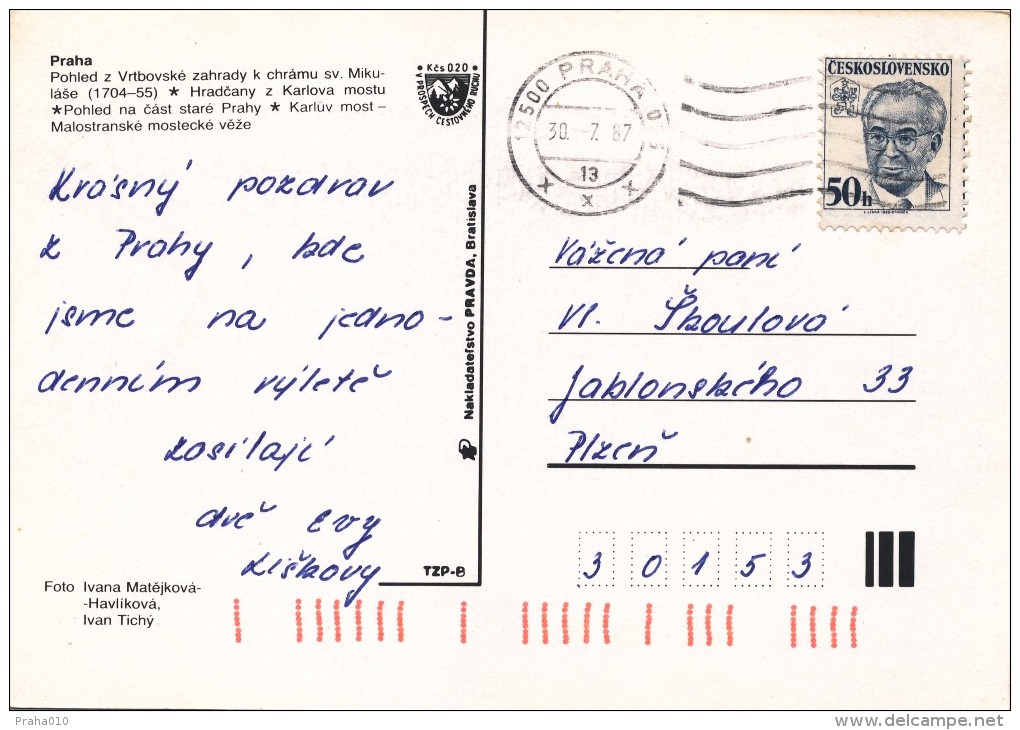 Praha
Pohled z Vrtbovské zahrady k chrámu sv. Miku-
láše (1704–55) ★ Hradčany z Karlova mostu
★Pohled na část staré Prahy ★ Karlův most –
Malostranské mostecké věže
• Kčs 0,20 •
V PROSPĚCH CESTOVNÉHO RUCHU
Krásný pozdrav
z Prahy, kde
jsme na jedno-
denním výletě
zasílají
dvě Evy
Liškovy
Foto Ivana Matějková-
-Havlíková,
Ivan Tichý
TZP-8
Nakladateľstvo PRAVDA, Bratislava
12500 PRAHA 025
30. -7. 87
13
x x x
ČESKOSLOVENSKO
50h
Vážená paní
Vl. Škoulová
Jablonského 33
Plzeň
3 0 1 5 3
Praha010
www.delcampe.net